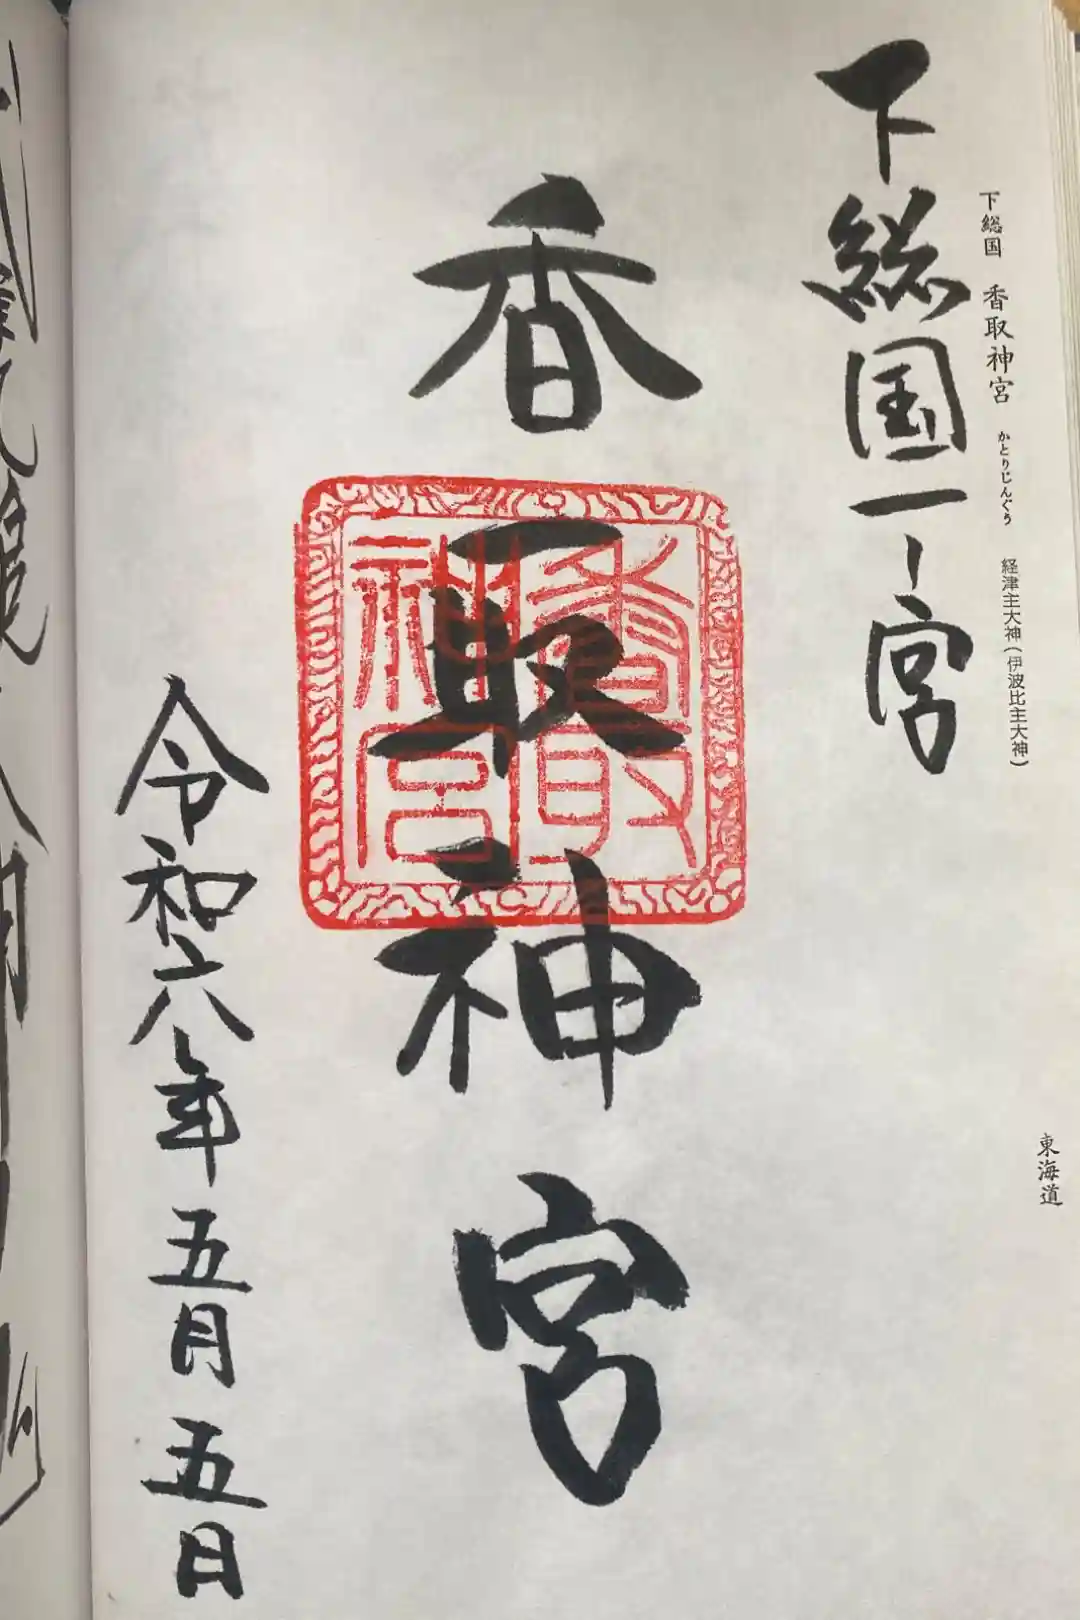 下総国 香取神宮 かとりじんぐう 経津主大神(伊波比主大神)
東海道
下総国一ノ宮
香取神宮
香取
神宮
令和六年五月五日